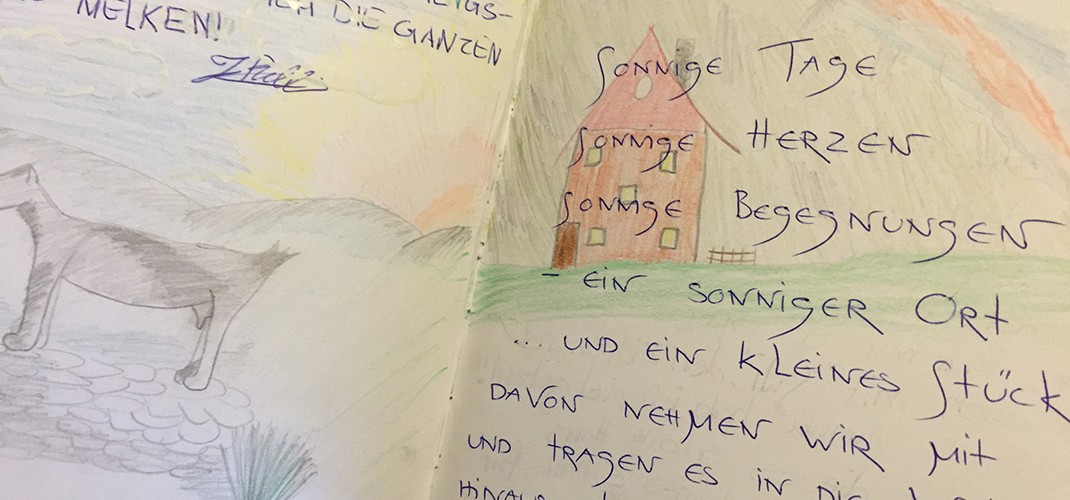 MELKEN!
ICH DIE GANZEN
SONNIGE TAGE
SONNIGE HERZEN
SONNIGE BEGEGNUNGEN
- EIN SONNIGER ORT
... UND EIN KLEINES STÜCK
DAVON NEHMEN WIR MIT
UND TRAGEN ES IN DIE